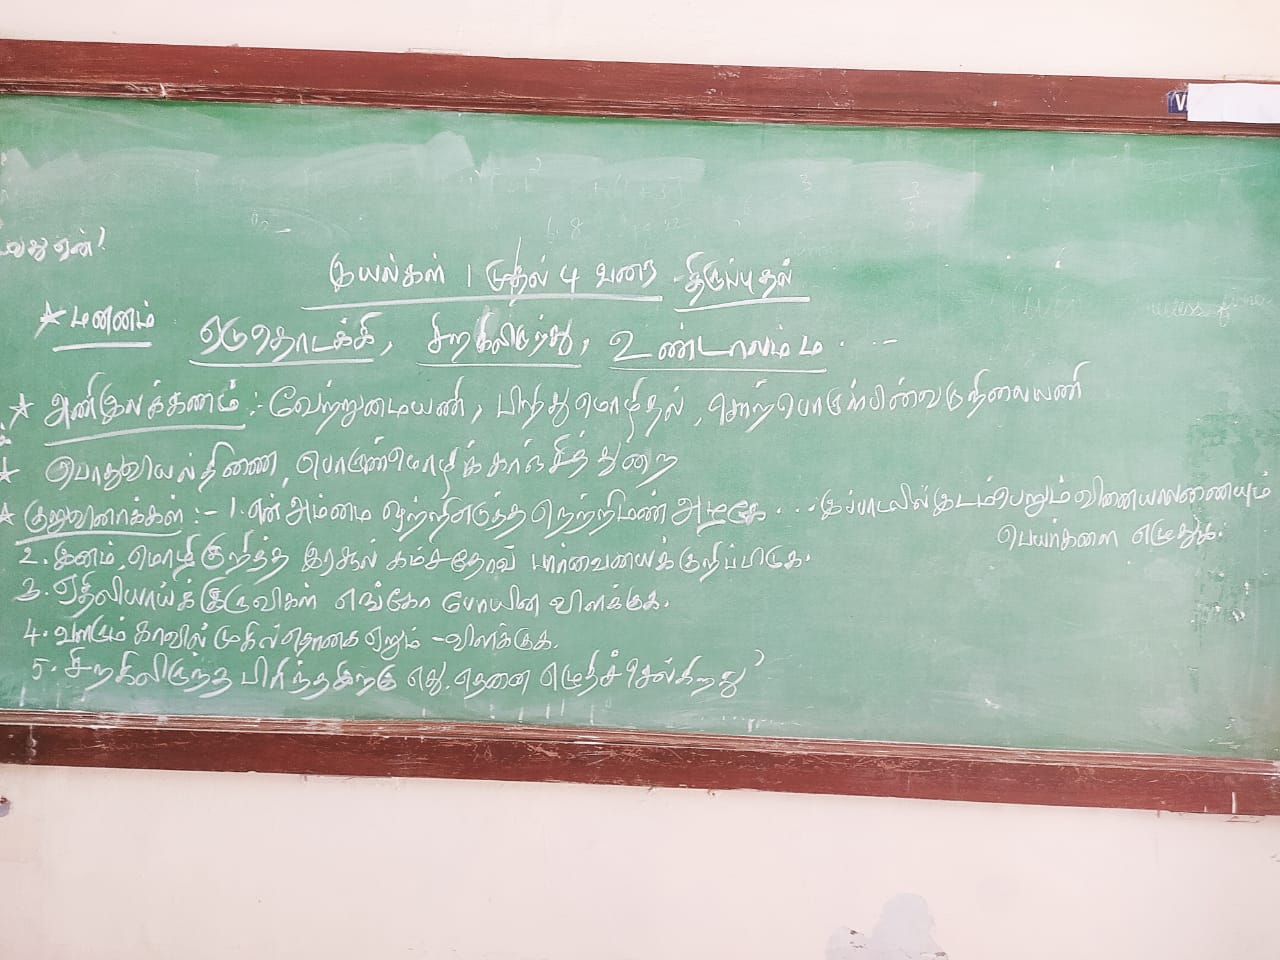 இயல்கள் 1 முதல் 4 வரை -திருப்புதல்
★ மனனம் ஏடுதொடக்கி, சிறகிலிருந்து, உண்டாலம்ம . . -
★ அணிஇலக்கணம் :- வேற்றுமையணி, பிறிதுமொழிதல், சொற்பொருள்பின்வருநிலையணி
★ பொதுவியல்திணை, பொருண்மொழிக் காஞ்சித் துறை
★ குறுவினாக்கள் :- 1. என் அம்மை ஒற்றியெடுத்த நெற்றிமண் அழகே . . . இப்பாடலில் இடம்பெறும் வினையாலணையும்
பெயர்களை எழுதுக.
2. இனம், மொழி குறித்த இரசூல் கம்சதோவ் பார்வையைக் குறிப்பிடுக.
3. ஏதிலியாய்க் குருவிகள் எங்கோ போயின விளக்குக.
4. வளரும் காவில் முகில்தொகை ஏறும் -விளக்குக.
5. சிறகிலிருந்து பிரிந்த இறகு எது. எதனை எழுதிச் செல்கிறது?